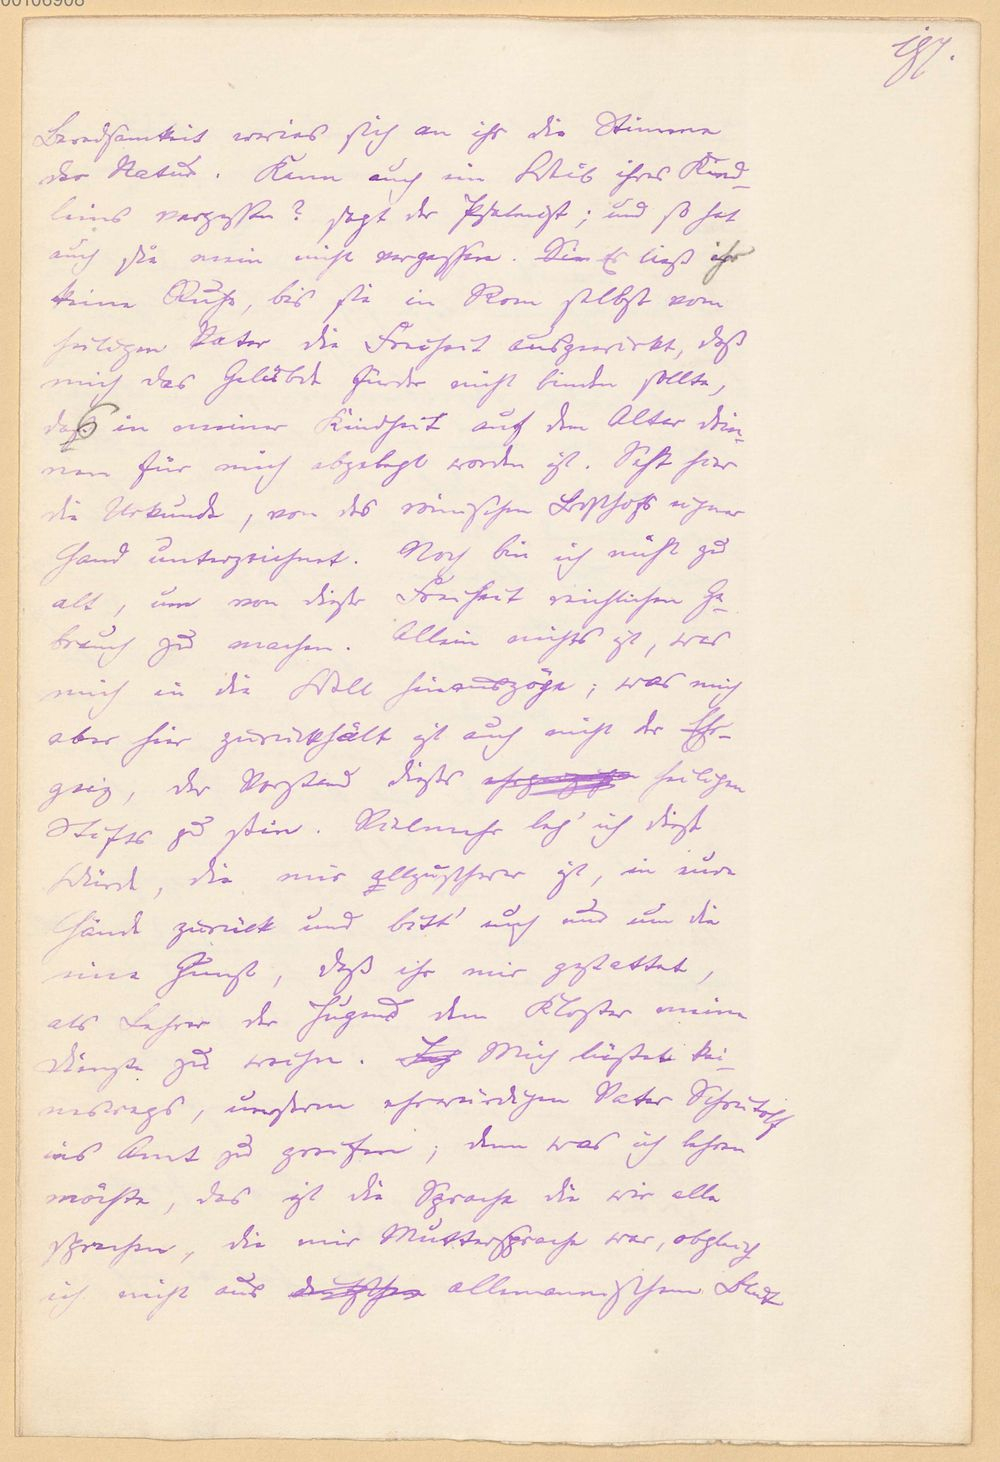 00106908
187.
Beredsamkeit erwies sich an ihr die Stimme
der Natur. Kann auch ein Weib ihres Kind-
leins vergessen? sagt der Psalmist; und so hat
auch sie mein nicht vergessen. Sie Es ließ ihr
keine Ruhe, bis sie in Rom selbst vom
heiligen Vater die Freiheit ausgewirkt, daß
mich das Gelübde fürder nicht binden sollte,
das in meiner Kindheit auf dem Altar drin-
nen für mich abgelegt worden ist. Seht hier
die Urkunde, von des römischen Bischofs eigner
Hand unterzeichnet. Noch bin ich nicht zu
alt, um von dieser Freiheit reichlichen Ge-
brauch zu machen. Allein nichts ist, was
mich in die Welt hinauszöge; was mich
aber hier zurückhält ist auch nicht der Ehr-
geiz, der Vorstand dieses heiligen
Stifts zu sein. Vielmehr leg' ich diese
Würde, die mir allzuschwer ist, in eure
Hände zurück und bitt' euch nur um die
eine Gunst, daß ihr mir gestattet,
als Lehrer der Jugend dem Kloster meine
Dienste zu weihen. Ich Mich lüstet kei-
neswegs, unserem ehrwürdigen Vater Schrutolf
ins Amt zu greifen; denn was ich lehren
möchte, das ist die Sprache die wir alle
sprechen, die mir Muttersprache war, obgleich
ich nicht aus deutschem allemannischem Blut